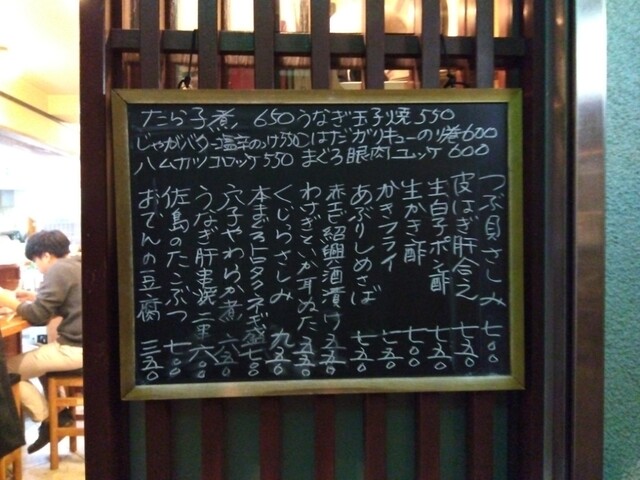 たら子煮 650 うなぎ玉子焼 550
じゃがバター塩辛のっけ550 こはだガリキューのり巻600
ハムカツコロッケ550 まぐろ眼肉ユッケ 600
つぶ貝さしみ 七〇〇
皮はぎ肝合え 七五〇
生白子ポン酢 七五〇
生かき酢
かきフライ
あぶりしめさば 七五〇
赤エビ紹興酒漬け 五五〇
わさぎといか耳ぬた 五五〇
くじらさしみ 九五〇
本まぐろトロタクネギ盛 七〇〇
穴子やわらか煮 六五〇
うなぎ肝串焼二本 六八〇
佐島のたこぶつ 七〇〇
おでんの豆腐 三五〇